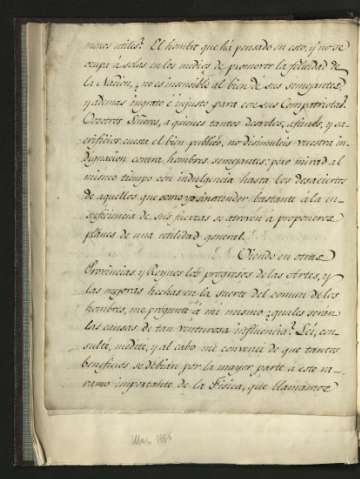 menos utiles? El hombre que há pensado en esto, y no se
ocupa á solas en los medios de promover la felicidad de
la Nacion, ¿no es insensible al bien de sus semejantes,
y ademas ingrato é injusto para con sus Compatriotas?
Vosotros Señores, a quienes tantos desvelos, afanes, y sa-
crificios cuesta el bien publico, no disimuleis vuestra in-
dignacion contra hombres semejantes: pero mirad al
mismo tiempo con indulgencia hasta los desaciertos
de aquellos, que como yo sin atender bastante á la in-
suficiencia de sus fuerzas se atreven á proponeros
planes de una utilidad general.
Viendo en otras
Provincias y Reynos los progresos de las Artes, y
las mejoras hechas en la suerte del comun de los
hombres, me pregunté á mi mismo ¿quales serán
las causas de tan venturosa influencia? Lei, con-
sulté, medité, y al cabo me convenci de que tantos
beneficios se debian por la mayor parte á este
ramo importante de la Fisica, que llamamos